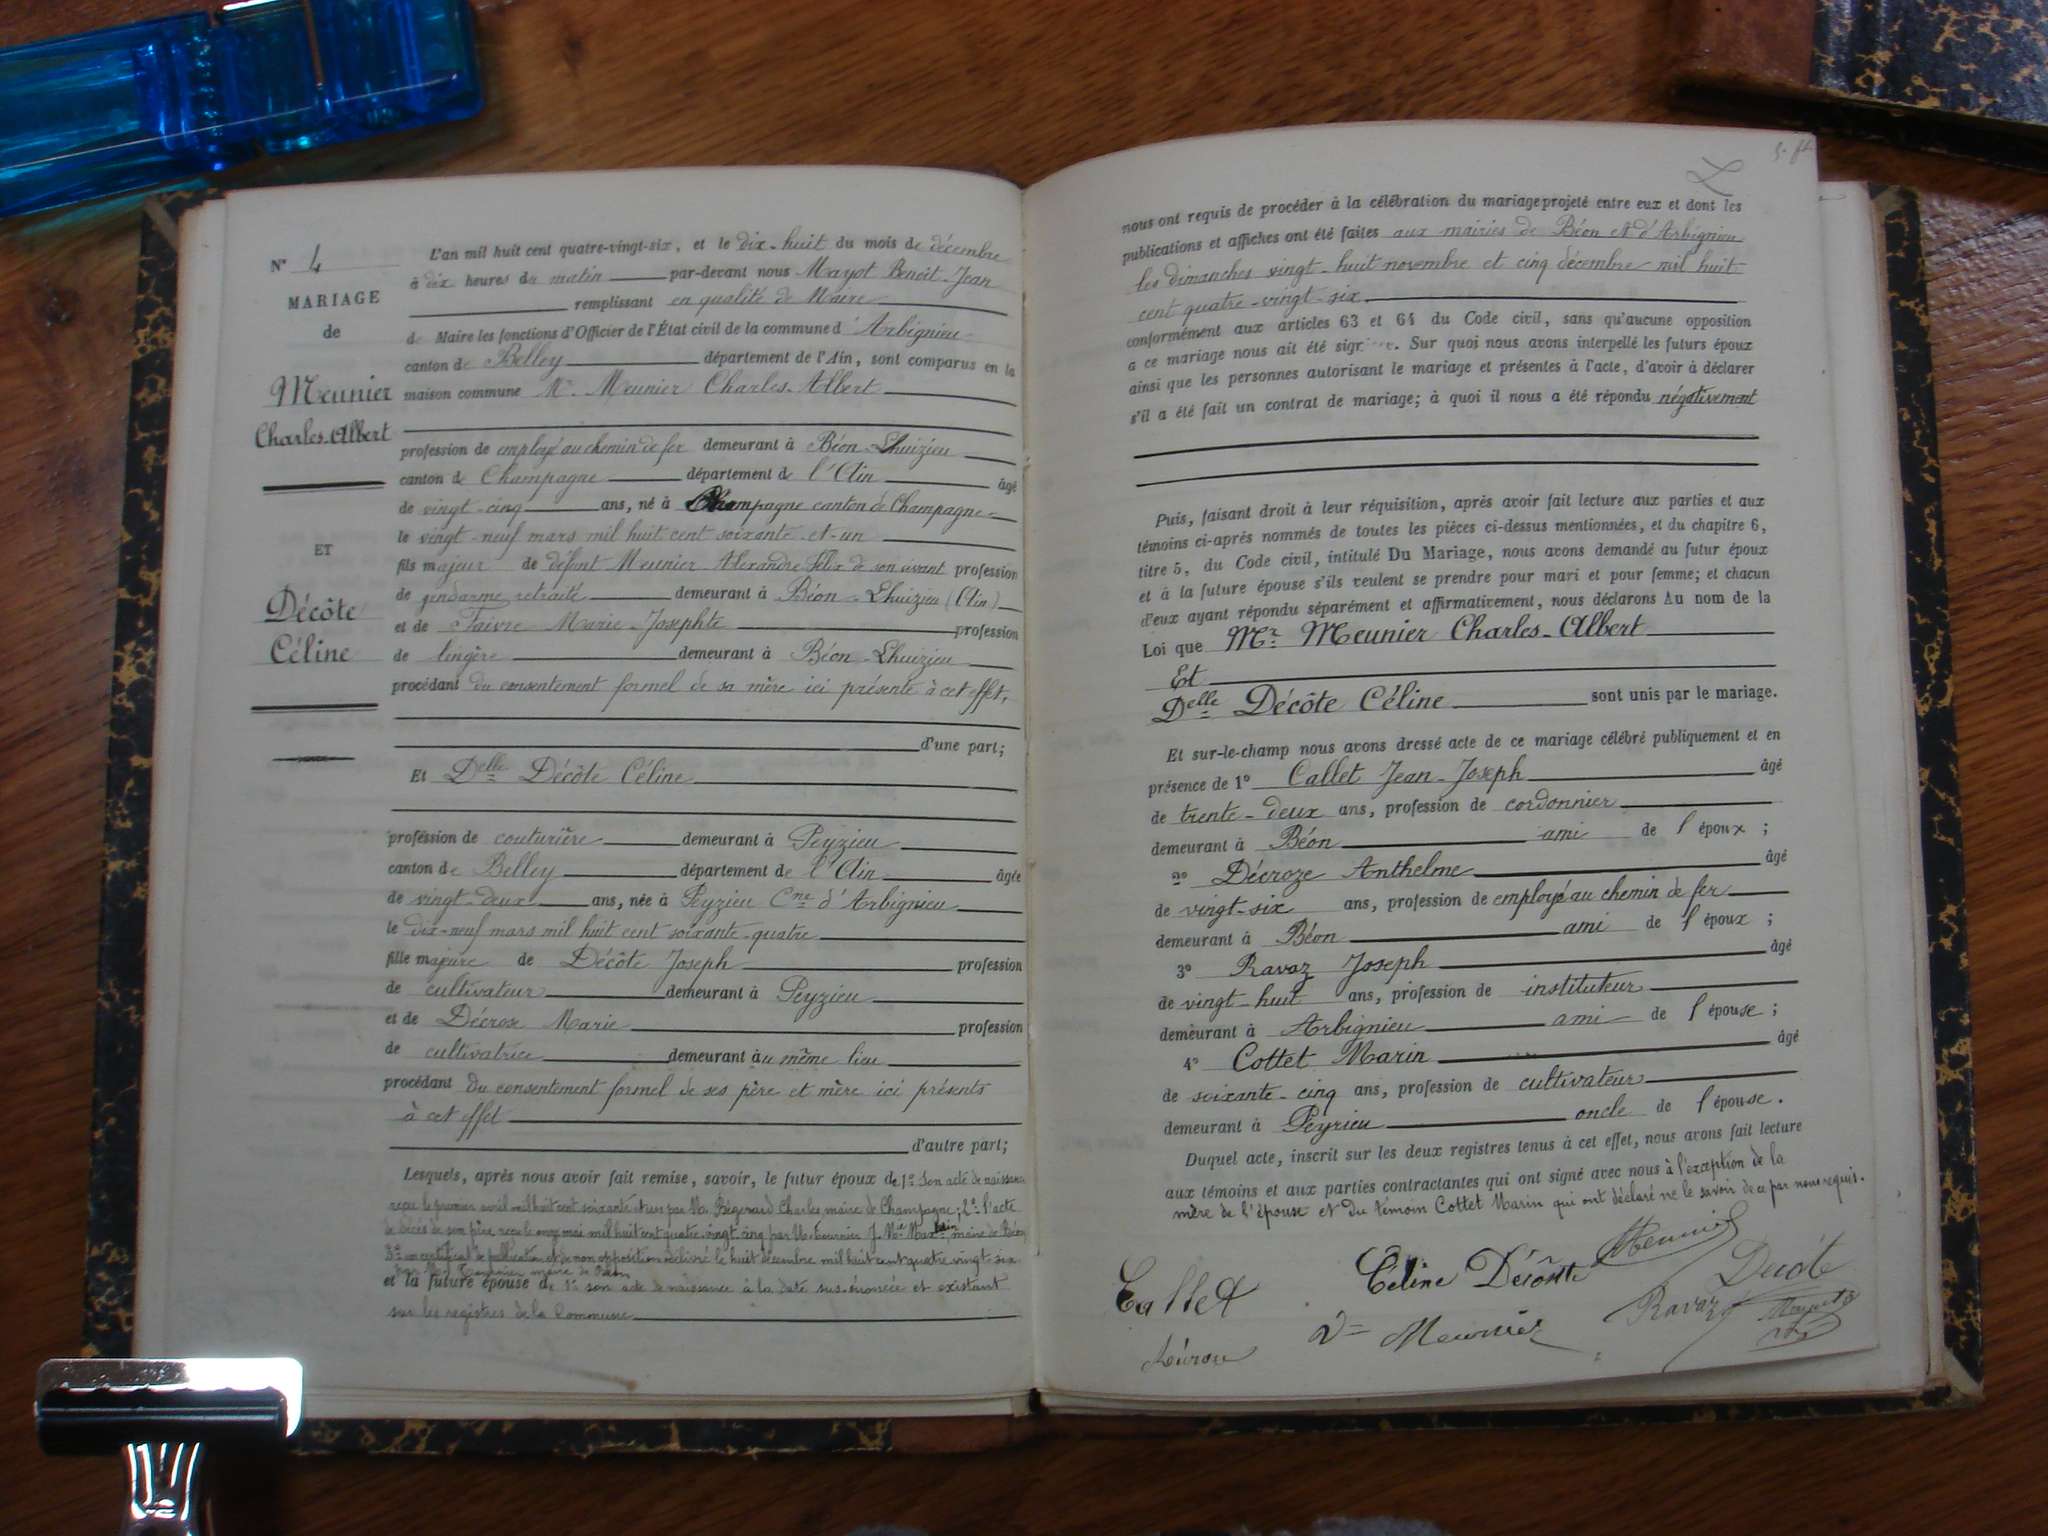 N° 4
MARIAGE
de
Meunier
Charles-Albert
ET
Décôte
Céline
L'an mil huit cent quatre-vingt-six, et le dix-huit du mois de décembre
à dix heures du matin par-devant nous Mayot Benoit-Jean
remplissant en qualité de Maire
de Maire les fonctions d'Officier de l'État civil de la commune d'Arbignieu
canton de Belley département de l'Ain, sont comparus en la
maison commune Mr. Meunier Charles-Albert
profession de employé au chemin de fer demeurant à Béon-Lhuizieu
canton de Champagne département de l'Ain âgé
de vingt-cinq ans, né à Champagne canton de Champagne
le vingt-neuf mars mil huit cent soixante-et-un
fils majeur de défunt Meunier Alexandre Félix de son vivant profession
de gendarme retraité demeurant à Béon-Lhuizieu (Ain)
et de Faivre Marie-Josephte profession
de lingère demeurant à Béon-Lhuizieu
procédant du consentement formel de sa mère ici présente à cet effet,
d'une part;
Et Delle Décôte Céline
profession de couturière demeurant à Peyzieu
canton de Belley département de l'Ain âgée
de vingt-deux ans, née à Peyzieu Cne d'Arbignieu
le dix-neuf mars mil huit cent soixante-quatre
fille majeure de Décôte Joseph profession
de cultivateur demeurant à Peyzieu
et de Décrose Marie profession
de cultivatrice demeurant au même lieu
procédant du consentement formel de ses père et mère ici présents
à cet effet
d'autre part;
Lesquels, après nous avoir fait remise, savoir, le futur époux de 1° Son acte de naissance
reçu le premier avril mil huit cent soixante et un par M. Charles maire de Champagne; 2° l'acte
de décès de son père reçu le onze mai mil huit cent quatre-vingt-cinq par M. Fournier J. maire de Béon
3° un certificat de publication et de non opposition délivré le huit décembre mil huit cent quatre vingt-six
par maire de Béon
et la future épouse de 1° son acte de naissance à la date sus-énoncée et existant
sur les registres de la Commune
nous ont requis de procéder à la célébration du mariage projeté entre eux et dont les
publications et affiches ont été faites aux mairies de Béon et d'Arbignieu
les dimanches vingt-huit novembre et cinq décembre mil huit
cent quatre-vingt-six
conformément aux articles 63 et 64 du Code civil, sans qu'aucune opposition
a ce mariage nous ait été signifiée. Sur quoi nous avons interpellé les futurs époux
ainsi que les personnes autorisant le mariage et présentes à l'acte, d'avoir à déclarer
s'il a été fait un contrat de mariage; à quoi il nous a été répondu négativement
Puis, faisant droit à leur réquisition, après avoir fait lecture aux parties et aux
témoins ci-après nommés de toutes les pièces ci-dessus mentionnées, et du chapitre 6,
titre 5, du Code civil, intitulé Du Mariage, nous avons demandé au futur époux
et à la future épouse s'ils veulent se prendre pour mari et pour femme; et chacun
d'eux ayant répondu séparément et affirmativement, nous déclarons Au nom de la
Loi que Mr. Meunier Charles-Albert
Et
Delle Décôte Céline sont unis par le mariage.
Et sur-le-champ nous avons dressé acte de ce mariage célébré publiquement et en
présence de 1° Callet Jean-Joseph âgé
de trente-deux ans, profession de cordonnier
demeurant à Béon ami de l'époux;
2° Décroze Anthelme âgé
de vingt-six ans, profession de employé au chemin de fer
demeurant à Béon ami de l'époux;
3° Ravaz Joseph âgé
de vingt-huit ans, profession de instituteur
demeurant à Arbignieu ami de l'épouse;
4° Cottet Marin âgé
de soixante-cinq ans, profession de cultivateur
demeurant à Peyzieu oncle de l'épouse.
Duquel acte, inscrit sur les deux registres tenus à cet effet, nous avons fait lecture
aux témoins et aux parties contractantes qui ont signé avec nous à l'exception de la
mère de l'épouse et du témoin Cottet Marin qui ont déclaré ne le savoir de ce par nous requis.
Meunier
Callet Céline Décôte Decôte
Ravaz Mayot
Ve Meunier